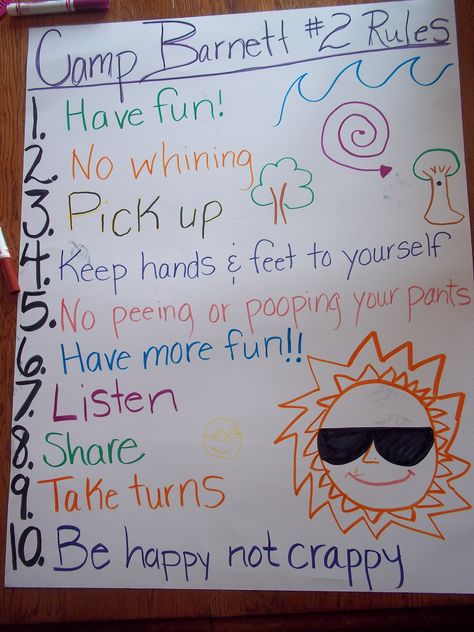 Camp Barnett #2 Rules
1. Have fun!
2. No whining
3. Pick up
4. Keep hands & feet to yourself
5. No peeing or pooping your pants
6. Have more fun!!
7. Listen
8. Share
9. Take turns
10. Be happy not crappy